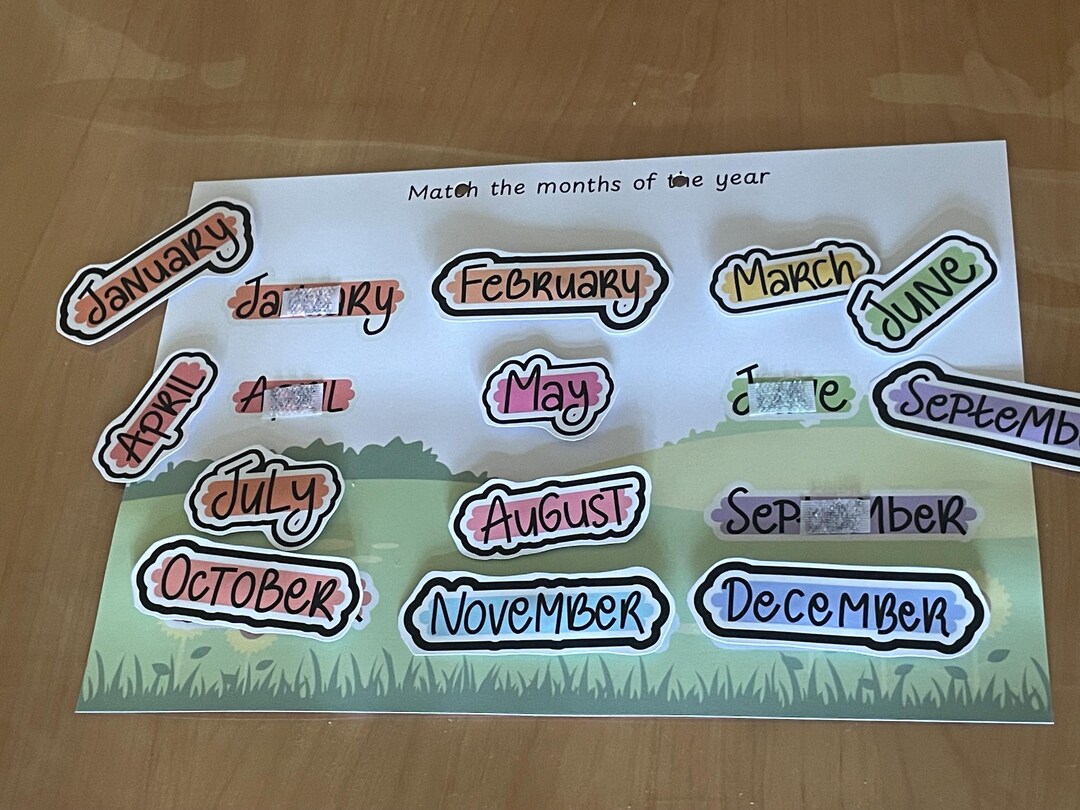 Match the months of the year
January
February
March
June
April
May
July
August
September
October
November
December